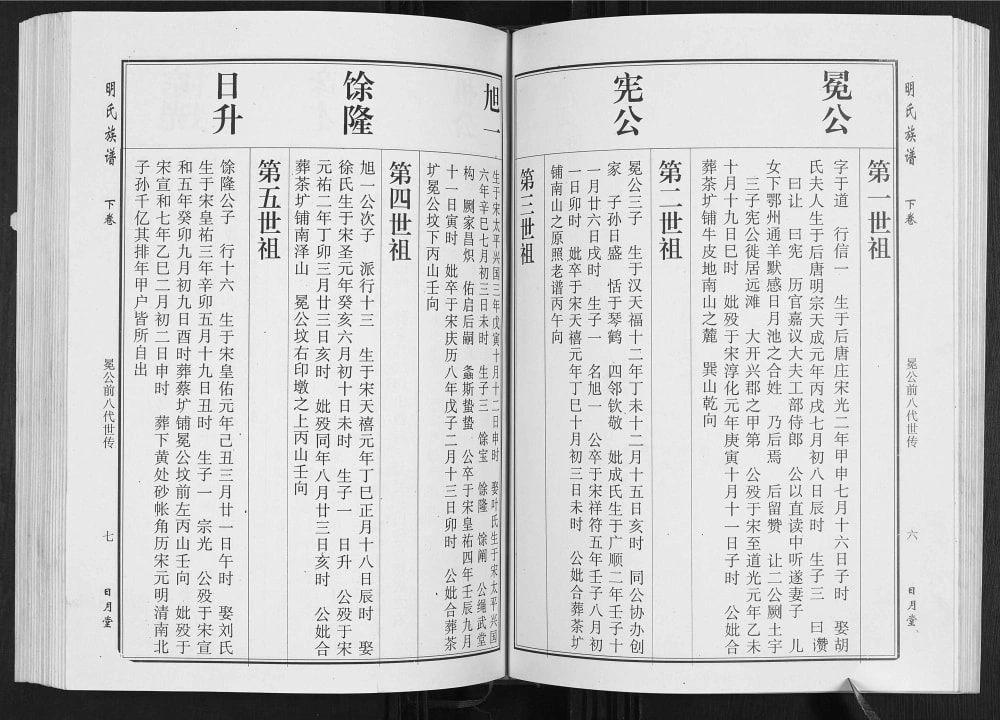 明氏族谱
下卷
冕公前八代世传
六
日月堂
第一世祖
冕公
字于道 行信一 生于后唐庄宋光二年甲申七月十六日子时 娶胡
氏夫人生于后唐明宗天成元年丙戌七月初八日辰时 生子三 曰瓒
曰让 曰宪 历官嘉议大夫工部侍郎 公以直读中听遂妻子 儿
女下鄂州通羊默感日月池之合姓 乃后焉 后留赞 让二公阙土宇
三子宪公徙居远滩 大开兴郡之甲第 公殁于宋至道光元年乙未
十月十九日巳时 妣殁于宋淳化元年庚寅十月十一日子时 公妣合
葬茶圹铺牛皮地南山之麓 巽山乾向
第二世祖
宪公
冕公三子 生于汉天福十二年丁未十二月十五日亥时 同公协办创
家 子孙日盛 恬于琴鹤 四邻钦敬 妣成氏生于广顺二年壬子十
一月廿六日戌时 生子一 名旭一 公卒于宋祥符五年壬子八月初
一日卯时 妣卒于宋天禧元年丁巳十月初三日未时 公妣合葬茶圹
铺南山之原照老谱丙午向
第三世祖
旭一
生于宋太平兴国三年戊寅十月十二日申时 娶叶氏生于宋太平兴国
六年辛巳七月初三日未时 生子三 馀宝 馀隆 馀阐 公绳武堂
构 阙家昌炽 佑启后嗣 螽斯蛰蛰 公卒于宋皇祐四年壬辰九月
十一日寅时 妣卒于宋庆历八年戊子二月十三日卯时 公妣合葬茶
圹冕公坟下丙山壬向
第四世祖
馀隆
旭一公次子 派行十三 生于宋天禧元年丁巳正月十八日辰时 娶
徐氏生于宋圣元年癸亥六月初十日未时 生子一 日升 公殁于宋
元祐二年丁卯三月廿三日亥时 妣殁同年八月廿三日亥时 公妣合
葬茶圹铺南泽山 冕公坟右印墩之上丙山壬向
第五世祖
日升
馀隆公子 行十六 生于宋皇佑元年己丑三月廿一日午时 娶刘氏
生于宋皇祐三年辛卯五月十九日丑时 生子一 宗光 公殁于宋宣
和五年癸卯九月初九日酉时葬蔡圹铺冕公坟前左丙山壬向 妣殁于
宋宣和七年乙巳二月初二日申时 葬下黄处砂帐角历宋元明清南北
子孙千亿其排年甲户皆所自出
明氏族谱
下卷
冕公前八代世传
七
日月堂